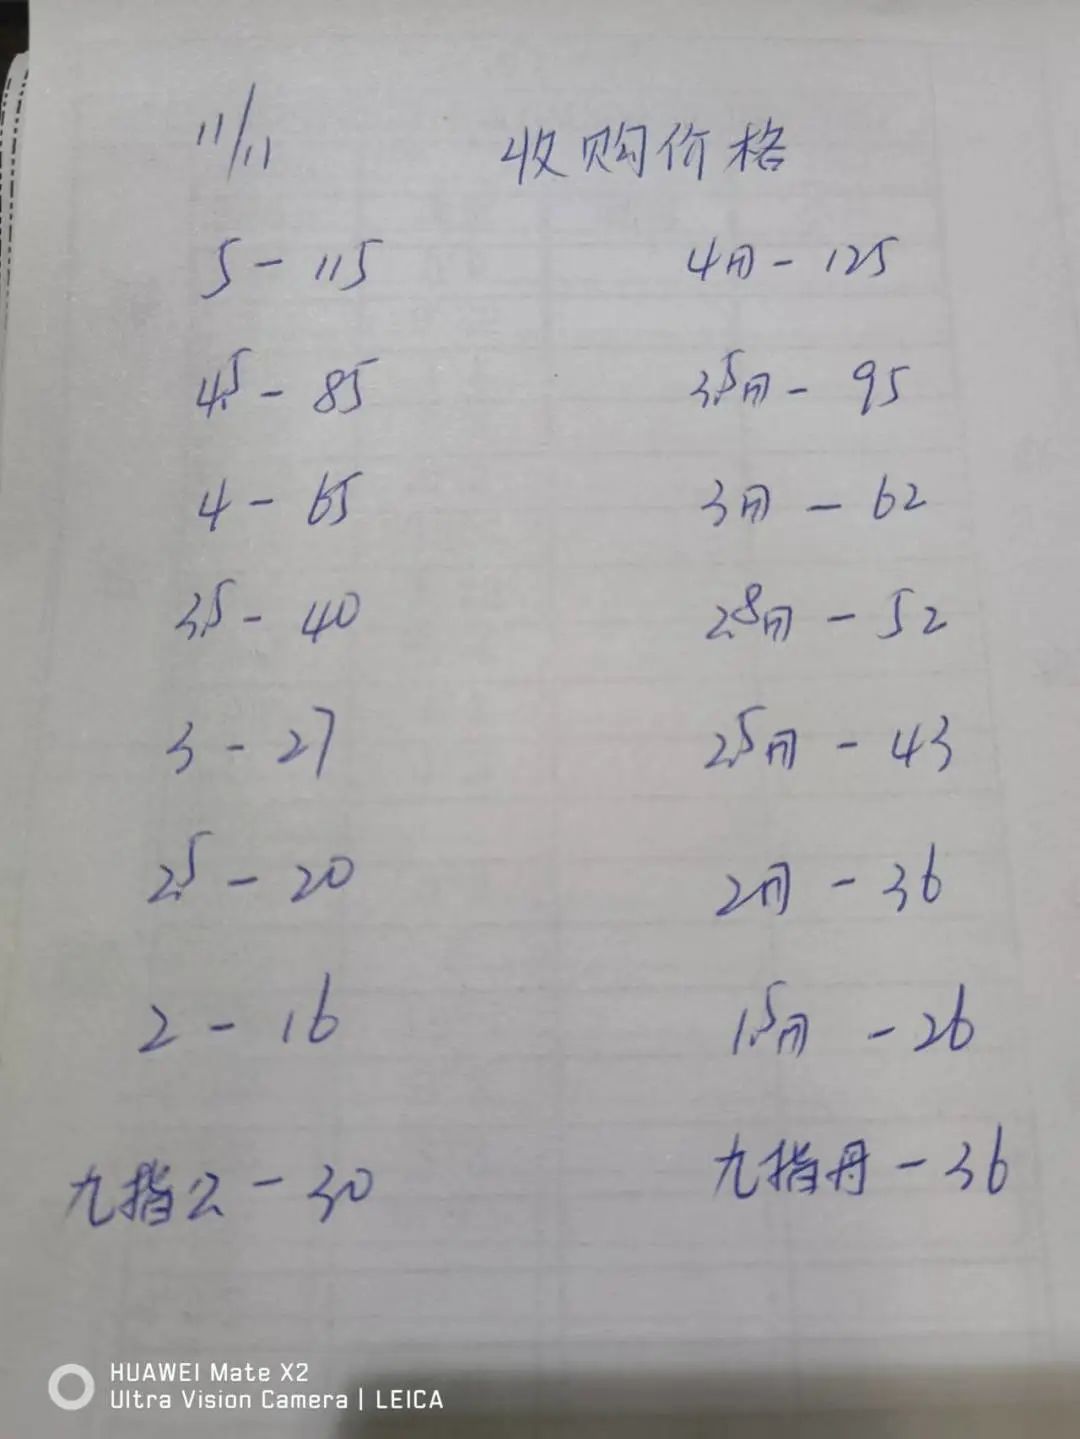 11/11 收购价格
5 - 115 4月 - 125
4.5 - 85 3.5月 - 95
4 - 65 3月 - 62
3.5 - 40 2.8月 - 52
3 - 27 2.5月 - 43
2.5 - 20 2月 - 36
2 - 16 1.5月 - 26
九指公 - 30 九指丹 - 36
HUAWEI Mate X2
Ultra Vision Camera | LEICA